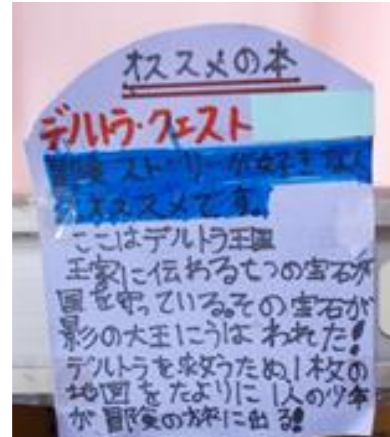 オススメの本
デルトラ・クエスト
冒険ストーリーが好きな人
にオススメです。
ここはデルトラ王国
王家に伝わる七つの宝石が
国を守っている。その宝石が
影の大王にうばわれた!
デルトラを救うため、1枚の
地図をたよりに1人の少年
が冒険の旅に出る!